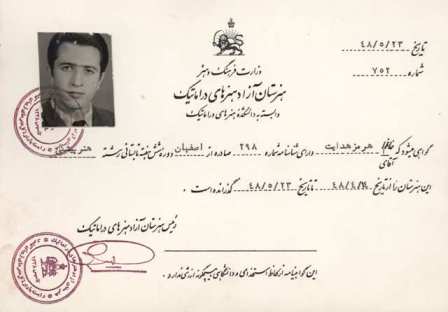 تاریخ ۴۸/۵/۲۳
شماره ۷۵۲
وزارت فرهنگ و هنر
هنرستان آزاد هنرهای دراماتیک
وابسته به دانشکده هنرهای دراماتیک
گواهی میشود که خانم هرمز هدایت دارای شناسنامه شماره ۲۹۸ صادره از اصفهان دوره شش هفته تابستانی رشته هنرپیشگی
آقای
این هنرستان را از تاریخ ۴۸/۴/ تا تاریخ ۴۸/۵/۲۳ گذرانده است .
رئیس هنرستان آزاد هنرهای دراماتیک
این گواهینامه از لحاظ استخدامی و دانشگاهی هیچگونه ارزشی ندارد .